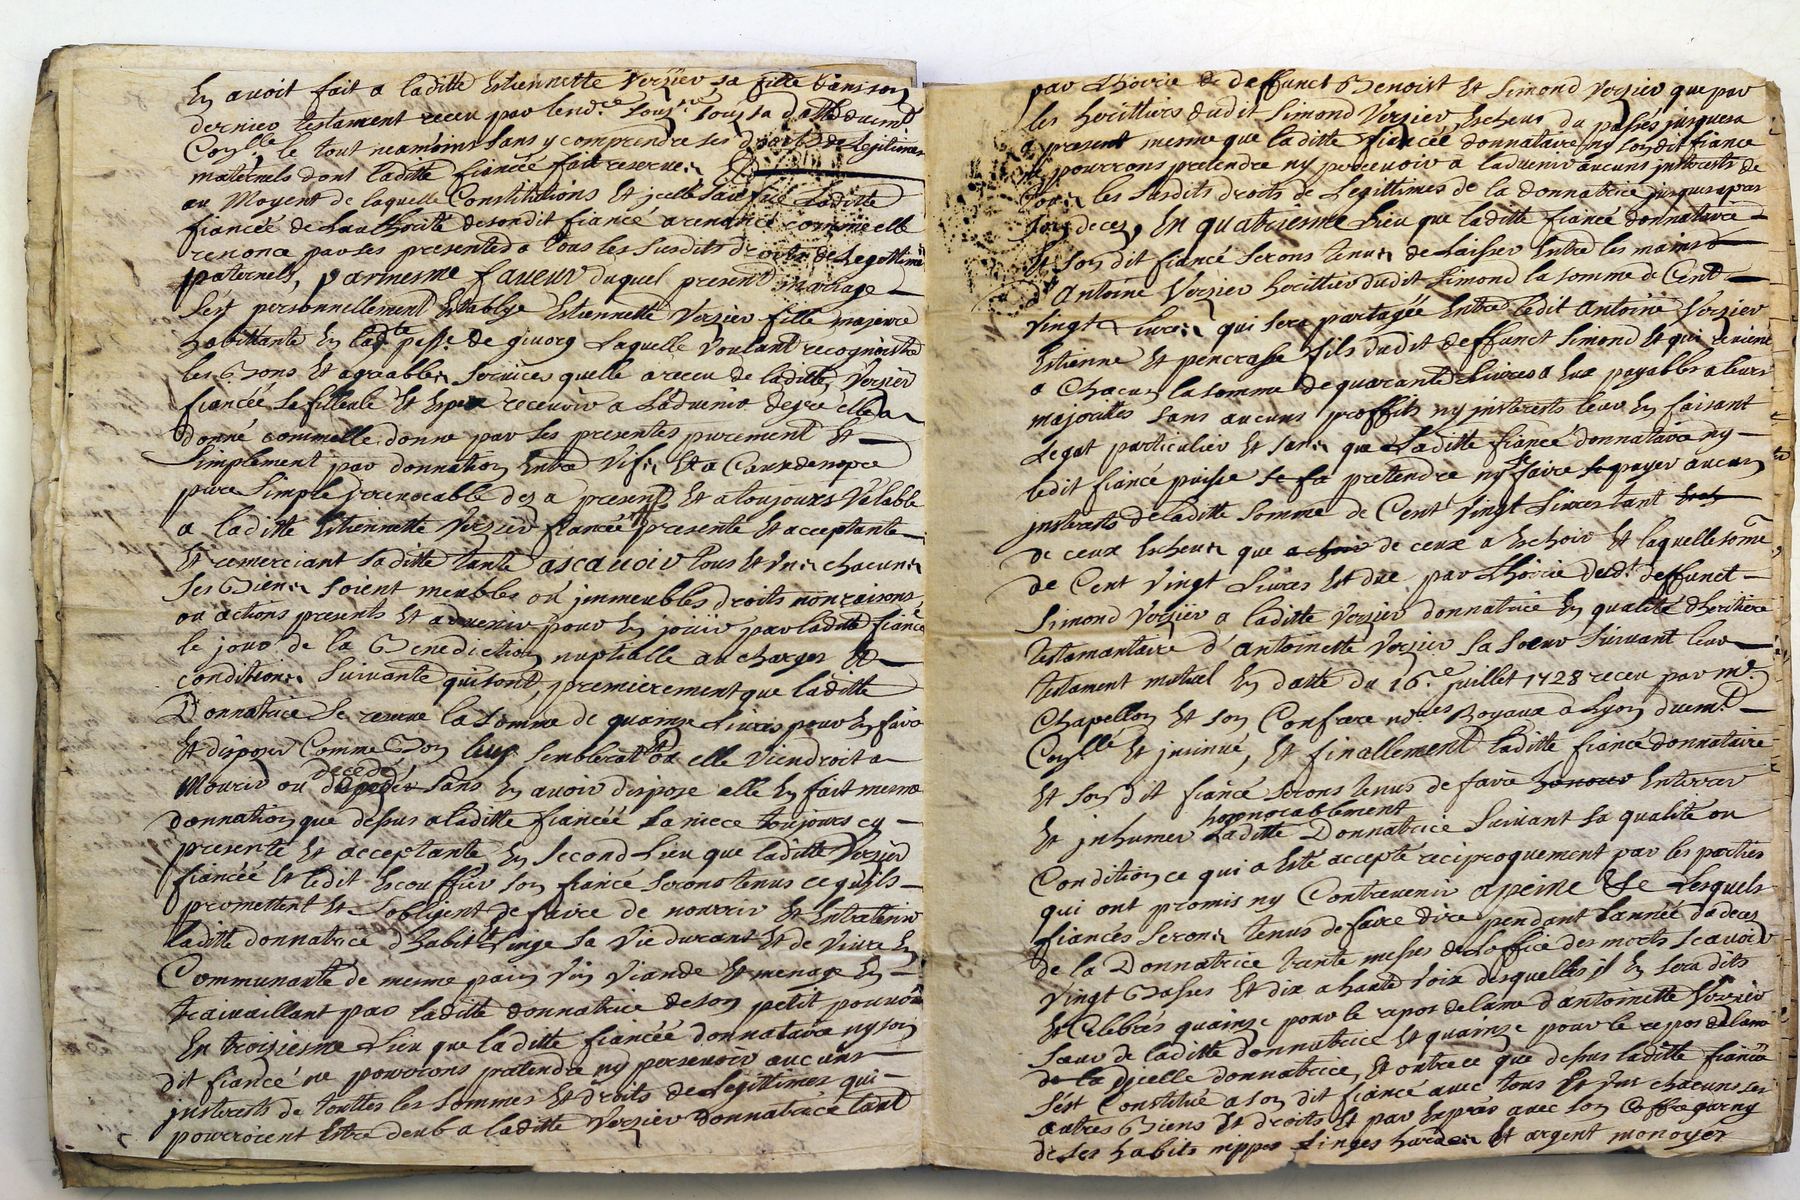 En avoit fait a laditte Estiennette Verzier sa fille dans son
dernier testament receu par lend.re sous.né sous sa datte duemt
Con.llé le tout neamoins sans y comprendre ses droits de Legitimes
maternels dont laditte fiancée fait reserve.
au Moyent de laquelle Constitutions Et jcelle sauf file Laditte
fiancée de lauthorité desondit fiancé a renoncé comme elle
renonce par ses presentes a tous les susdits droits de Legettime
paternels, parmesme faveur duquel present mariage
sest personnellement Establye Estiennette Verzier fille majeure
habittante En lad.te pesse. De givorg Laquelle voulant recognoistre
les Bons Et agreables services quelle a receu de laditte Verzier
fiancée sa filleule Et Espere recevoir a Ladvenir degré elle a
donné commelle donne par ses presentes purement Et
simplement par donnation Entre vifs Et a Cause de nopce
pure simple jrrevocable des a present Et a toujours Valable
a laditte Estiennette Verzier fiancée presente Et acceptante
Et remerciant saditte tante ascavoir tous Et vns chacuns
ses Biens soient meubles ou jmmeubles droits nom raisons
ou actions presents Et advenir pour En jouir par laditte fiancée
le jour de la Benediction nuptialle au charges Et
conditions suivante qui sont, premierement que laditte
Donnatrice se reserve la somme de quainze Livres pour En faire
Et disposer Comme Bon luy semblerat Et ou elle viendroit a
Mourir ou décédé sans En avoir dispose elle En fait mesme
donnation que dessus a laditte fiancéé sa niece toujours cy
presente Et acceptante, En second Lieu que laditte Verzier
fiancéé Et ledit Escouffier son fiancé seronstenus ce quils
promettent Et sobligent de faire de nourrir Et Entretenir
laditte donnatrice dhabit Et Linge sa Vie durant Et de Vivre En
Communante de mesme pain Vin Viande Et menage En
travaillant par laditte donnatrice de son petit pouvoir
En troisiesme Lieu que laditte fiancéé donnataire ny son
dit fiancé ne pourrons pretendre ny persevoir aucuns
justerests de touttes les sommes Et droits de Legittimes qui
pourroient Estre deub a laditte Verzier donnatrice tant
par Lhoirie de deffunct Benoist Et Simond Verzier que par
les herittiers dudit Simond Verzier Escheus du passés jusques a
a present mesme que laditte fiancée donnataire ny sondit fiance
ne pourrons pretendre ny percevoir a ladvenir aucuns jnterests de
tous les susdits droits de Legittimes de la donnatrice jusque apres
son deces, En quatriesme Lieu que laditte fiancé donnataire
Et son dit fiancé serons tenus de laisser Entre les mains
d'Antoine Verzier herittier dudit Simond la somme de Cent
vingt Livres qui sera partagée Entre ledit Antoine Verzier
Estienne Et pencrasse fils dudit deffunct Simond Et qui revient
a Chacun la somme de quarante Livres a Eux payables a leurs
majorités sans aucuns proffits ny jnterests leur En faisant
Legat particulier Et sans que Laditte fiancé donnataire ny
ledit fiancé puisse se fa pretendre ny se faire payer aucun
jnterests de laditte somme de Cent Vingt Livres tant
de ceux Escheus que de ceux a Eschoir Et laquelle some
de Cent vingt Livres Est due par Lhoirie dud.t deffunct
Simond Verzier a laditte Verzier donnatrice En qualité dheritiere
testamantaire d'Antoinette Verzier sa soeur suivant leur
testament mutuel En datte du 16.e juillet 1728 receu par m.e
Chapellon Et son Confrere no.res Royaux a Lyon duemt
Con.llé Et jnsinué, Et finallement laditte fiancé donnataire
Et son dit fiancé serons tenus de faire honour Enterrer
Et jnhumer honnorablement laditte Donnatrice suivant sa qualité ou
Condition ce qui a Esté accepté reciproquement par les parties
qui ont promis ny Contrevenir a peine &c Lesquels
fiancés serons tenus de faire dire pendant lannée dudeces
de la Donnatrice trante messes de loffice des morts scavoir
Vingt Basses Et dix a haute voix desquelles il En sera dits
Et celebrés quainze pour le repos de lame d'antoinette Verzier
soeur de laditte donnatrice Et quainze pour le repos de lame
de la djcelle donnatrice, Et outre ce que dessus laditte fiancée
sest Constitué a son dit fiancé avec tous Et vns chacuns ses
autres Biens Et droits Et par Exprés avec son Coffre garny
de ses habits nippes Linges hardes Et argent monoyér